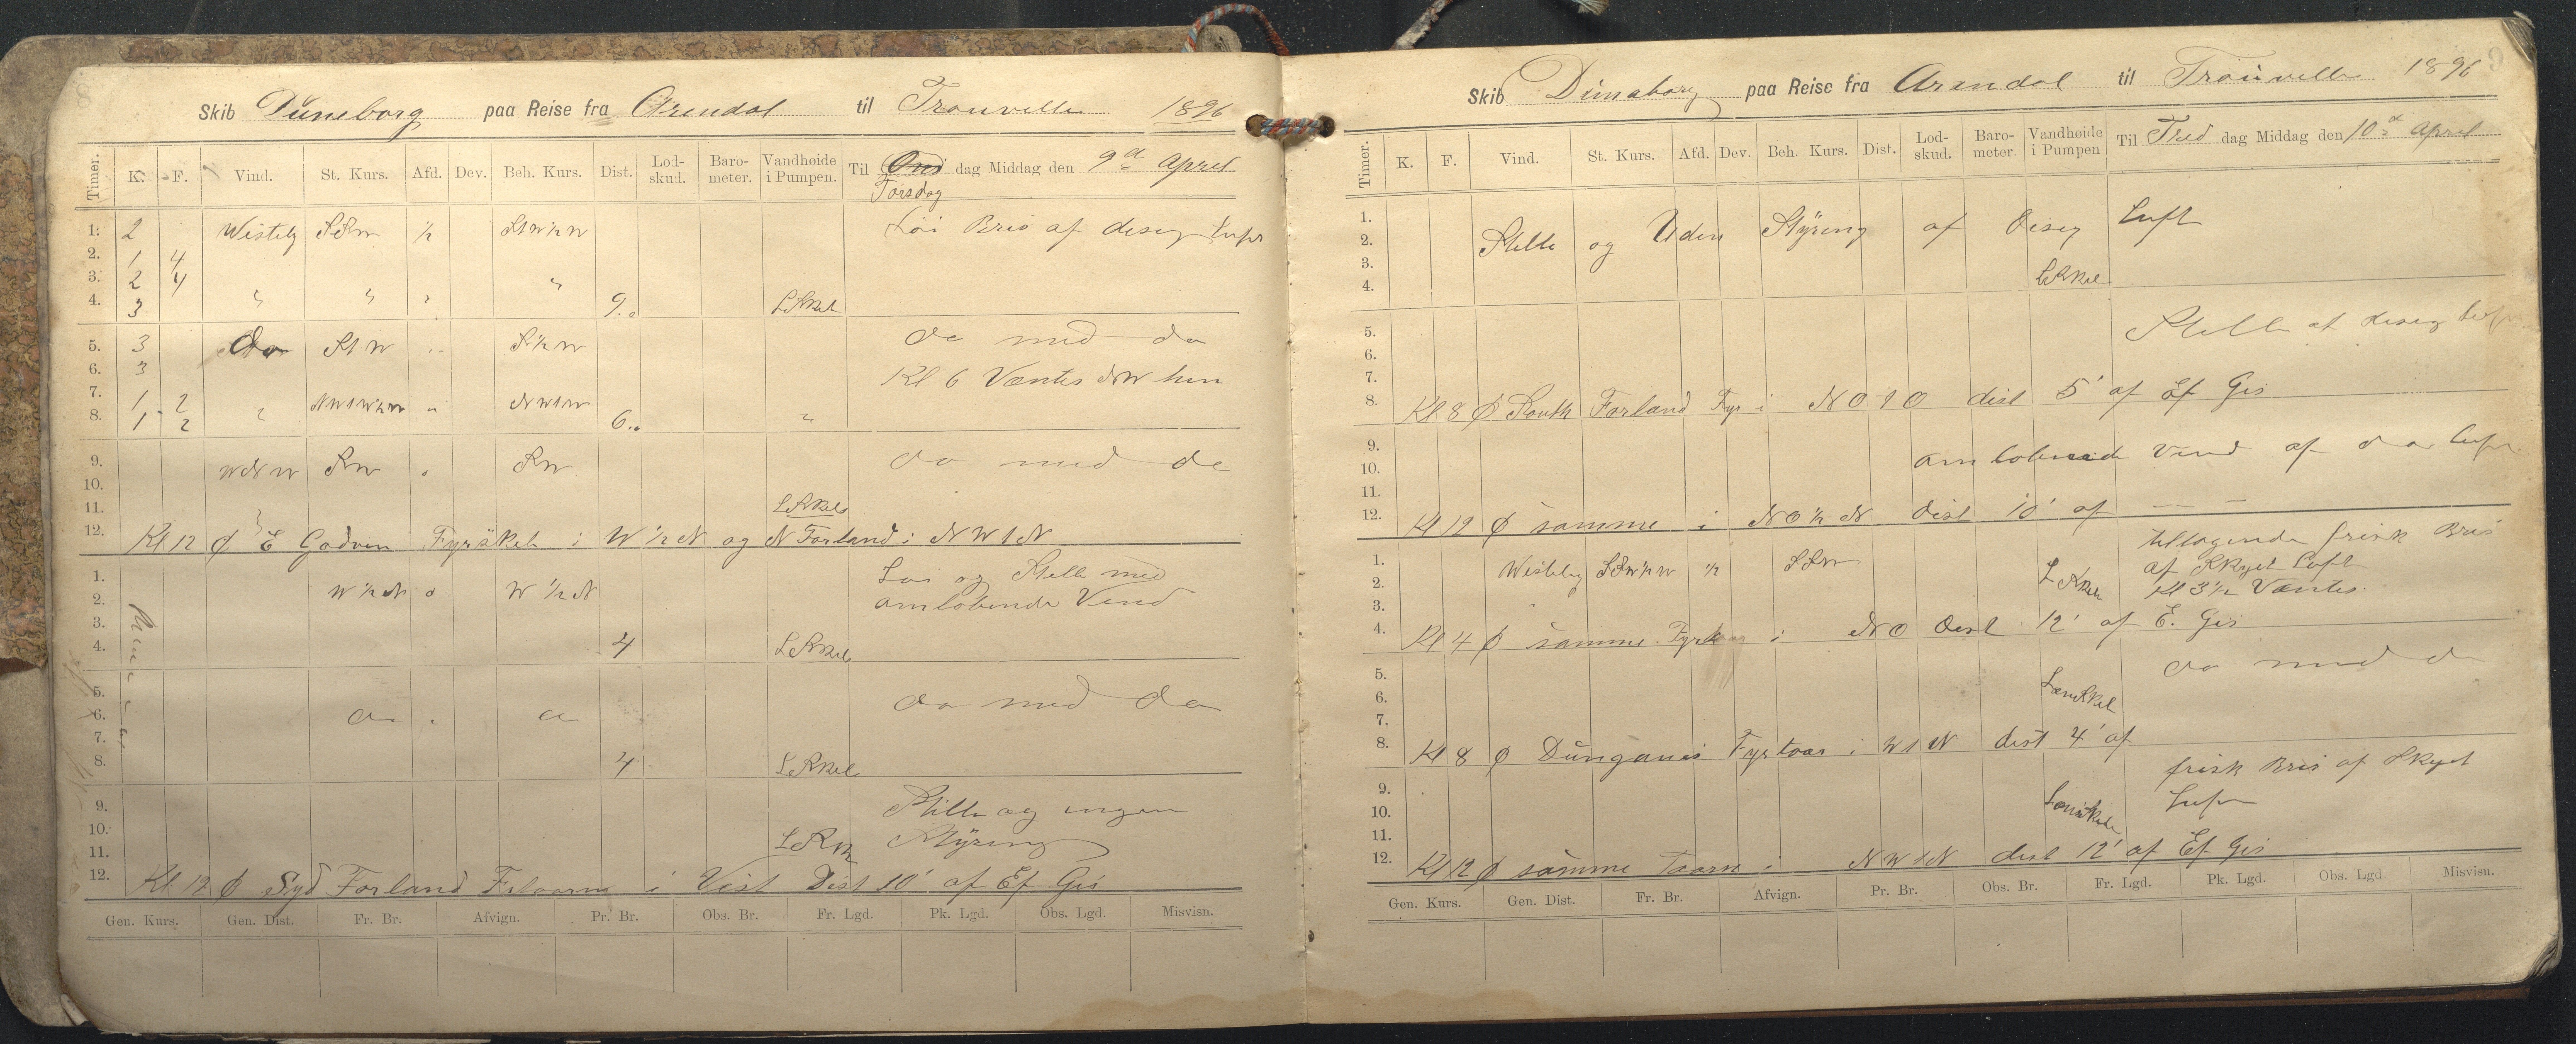 8
Skib Düneborg paa Reise fra Arendal til Trouville 1896
Timer. K. F. Vind. St. Kurs. Afd. Dev. Beh. Kurs. Dist. Lod-skud. Baro-meter. Vandhøide i Pumpen. Til Ons dag Middag den 9d April
Torsdag
1. 2 Westelg SSW ½ S1W½W Löi Bris af diseg Luft
2. 1 4
3. 2 4
4. 3 " " " " 9.. LSkel
5. 3 Do S1W " S½W do med do
6. 3 Kl 6 Væntes NW hen
7. 1 2 NW1W½W " NW1W
8. 1 2 " 6.. "
9. WNW SW " SW do med do
10.
11. LSkel
12. Kl 12 φ E Godvin Fyrskib i W½N og N Forland i NW1N
1. W½N o W½N Løi og Stille med
2. omløbende Vind
3.
4. 4 LSkel
5. do med do
6. do " do
7.
8. 4 LSkel
9. Stille og ingen
10. LSk Styring
11.
12. Kl 12 φ Syd Forland i Vest Dist 10' af Ef Gis
Gen. Kurs. Gen. Dist. Fr. Br. Afvign. Pr. Br. Obs. Br. Fr. Lgd. Pk. Lgd. Obs. Lgd. Misvisn.
9
Skib Dünaborg paa Reise fra Arendal til Trouville 1896
Timer. K. F. Vind. St. Kurs. Afd. Dev. Beh. Kurs. Dist. Lod-skud. Baro-meter. Vandhøide i Pumpen Til Fred dag Middag den 10d April
1. Stille og Uden Styring af Diseg Luft
2.
3. LSkel
4.
5. Stille af diseg Luft
6.
7.
8. Kl 8 φ South Forland Fyr i NO1O dist 5' af Ef Gis
9. omløbende Vind af do Luft
10.
11.
12. Kl 12 φ samme i NO½N dist 10' af — —
tiltagende frisk Bris
1. Westelig SSW½W ½ SSW af Skyet Luft
2. LSkel Kl 3½ Væntes.
3.
4. Kl 4 φ samme i NO Dist 12' af E. Gis
5. do med do
6. LænsKel
7.
8. Kl 8 φ Dünganes Fyrtaar i W1N dist 4' af
frisk Bris af Skyet
9. Luft
10. Lænskel
11.
12. Kl 12 φ samme Taarn i NW1N dist 12' af Ef Gis
Gen. Kurs. Gen. Dist. Fr. Br. Afvign. Pr. Br. Obs. Br. Fr. Lgd. Pk. Lgd. Obs. Lgd. Misvisn.